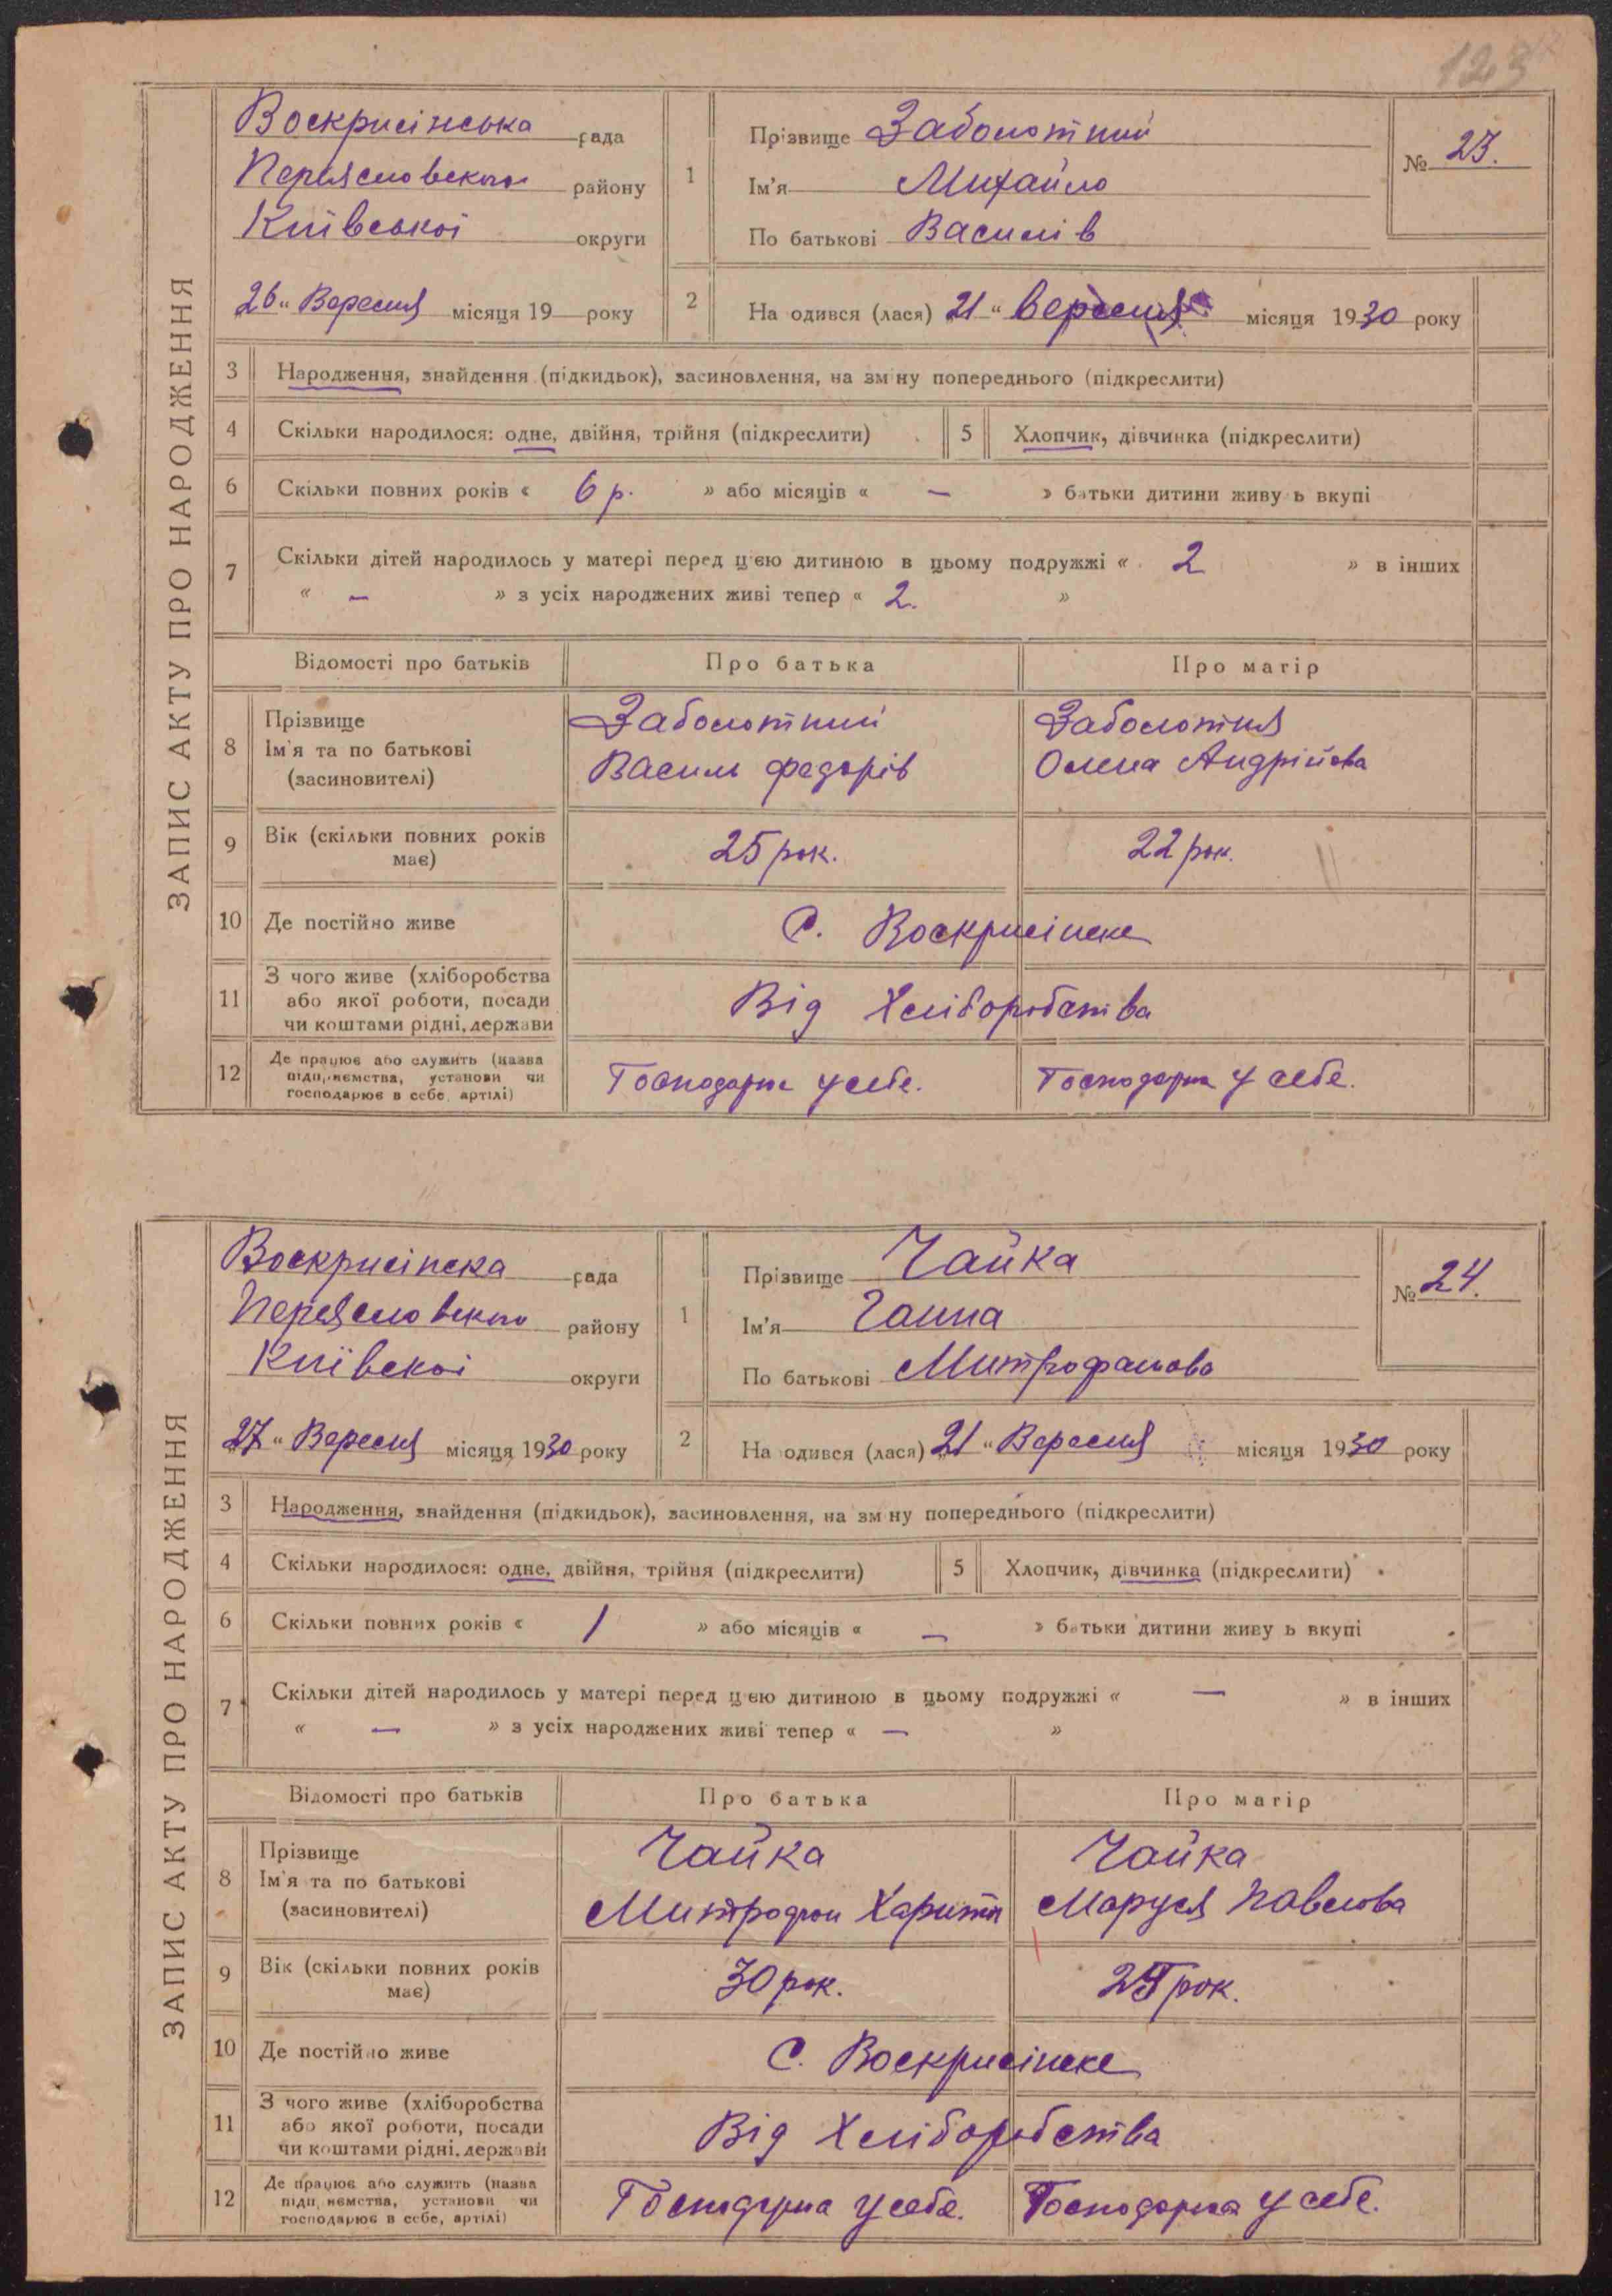 123
ЗАПИС АКТУ ПРО НАРОДЖЕННЯ
Воскрисінська рада
Переясловского району
Київської округи
26 „ Вересня місяця 19 року
1
Прізвище Заболотний
Ім'я Михайло
По батькові Василів
№ 23.
2
На одився (лася) 21 „ вересня місяця 1930 року
3 Народження, знайдення (підкидьок), засиновлення, на зм ну попереднього (підкреслити)
4 Скільки народилося: одне, двійня, трійня (підкреслити) 5 Хлопчик, дівчинка (підкреслити)
6 Скільки повних років « 6 р. » або місяців « — » батьки дитини живу ь вкупі
7 Скільки дітей народилось у матері перед цією дитиною в цьому подружжі « 2 » в інших
« — » з усіх народжених живі тепер « 2. »
Відомості про батьків Про батька Про матір
8 Прізвище Заболотний Заболотня
Ім'я та по батькові
(засиновителі) Василь Федорів Олена Андрійова
9 Вік (скільки повних років має) 25 рок. 22 рок.
10 Де постійно живе С. Воскрисінске
11 З чого живе (хліборобства
або якої роботи, посади
чи коштами рідні, держави Від Хліборобства
12 Де працює або служить (назва
підприємства, установи чи
господарює в себе, артілі) Господарює у себе. Господарює у себе.
ЗАПИС АКТУ ПРО НАРОДЖЕННЯ
Воскрисінска рада
Переясловского району
Київскої округи
27 „ Вересня місяця 1930 року
1
Прізвище Чайка
Ім'я Ганна
По батькові Митрофанова
№ 24.
2
На одився (лася) 21 „ Вересня місяця 1930 року
3 Народження, знайдення (підкидьок), засиновлення, на зм ну попереднього (підкреслити)
4 Скільки народилося: одне, двійня, трійня (підкреслити) 5 Хлопчик, дівчинка (підкреслити)
6 Скільки повних років « 1 » або місяців « — » батьки дитини живу ь вкупі
7 Скільки дітей народилось у матері перед цією дитиною в цьому подружжі « — » в інших
« — » з усіх народжених живі тепер « — »
Відомості про батьків Про батька Про матір
8 Прізвище Чайка Чайка
Ім'я та по батькові
(засиновителі) Митрофан Маруся Павлова
9 Вік (скільки повних років має) 30 рок. рок.
10 Де постійно живе С. Воскрисінске
11 З чого живе (хліборобства
або якої роботи, посади
чи коштами рідні, держави Від Хліборобства
12 Де працює або служить (назва
підприємства, установи чи
господарює в себе, артілі) Господарює у себе. Господарює у себе.